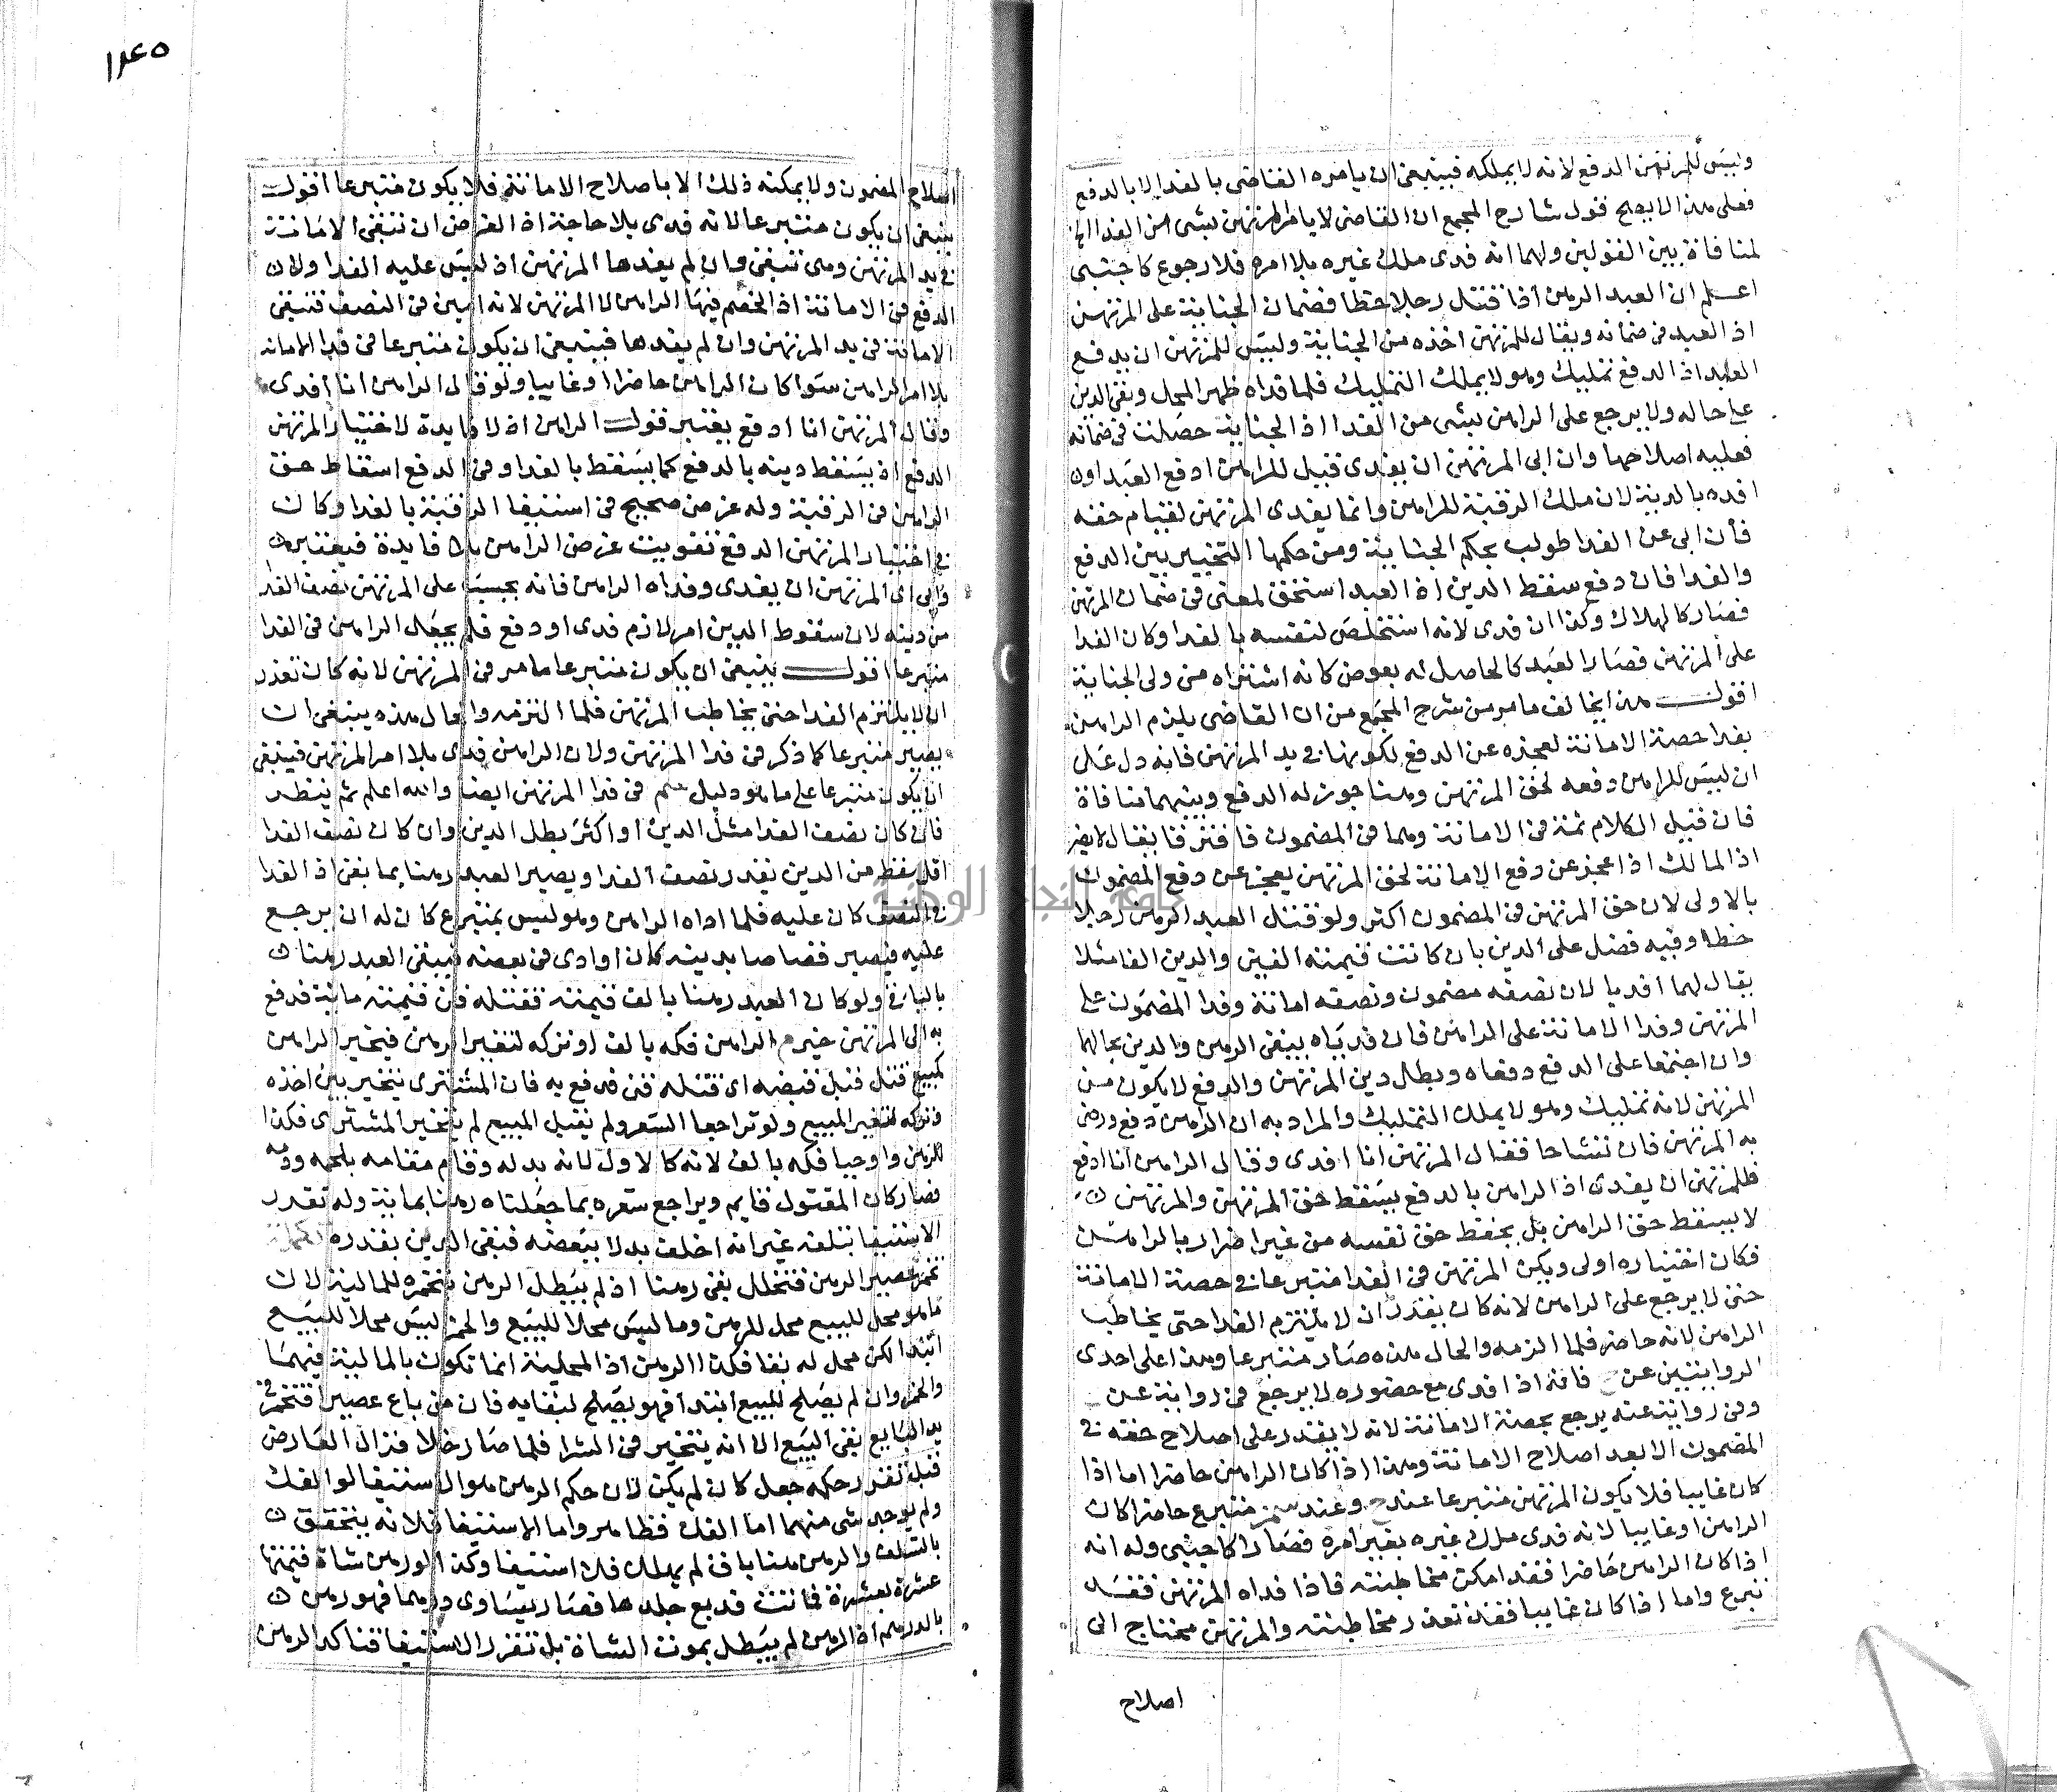 وليس للمرتهن الدفع لانه لا يملكه فينبغي ان يامره القاضي بالفدا لا بالدفع
فعلى هذا لا يصح قول شارح المجمع ان القاضي لا يامر المرتهن بشي من الفدا
لمنافاة بين القولين ولهما انه فدى ملك غيره بلا امره فلا رجوع كاجنبي
اعلم ان العبد الرهن اذا قتل رجلا خطا فضمان الجناية على المرتهن
اذ العبد في ضمانه ويقال للمرتهن اخذه من الجناية وليس للمرتهن ان يدفع
العبد اذ الدفع تمليك وهو لا يملك التمليك فلما فداه ظهر المحل وبقي الدين
على حاله ولا يرجع على الراهن بشي من الفدا اذ الجناية حصلت في ضمانه
فعليه اصلاحها وان ابى المرتهن ان يفدى قيل للراهن ادفع العبد او
افده بالدية لان ملك الرقبة للراهن وانما يفدى المرتهن لقيام حقه
فان ابى عن الفدا طولب بحكم الجناية ومن حكمها التخيير بين الدفع
والفدا فان دفع سقط الدين اذ العبد استحق لمعنى في ضمان المرتهن
فصار كالهلاك وكذا ان فدى لانه استخلص لنفسه بالفدا وكان الفدا
على المرتهن فصار العبد كالحاصل له بعوض كانه اشتراه من ولي الجناية
اقول هذا يخالف ما مر من شرح المجمع من ان القاضي يلزم الراهن
بفدا حصة الامانة لعجزه عن الدفع لكونها في يد المرتهن فانه دل على
ان ليس للراهن دفعه لحق المرتهن وهنا جوز له الدفع وبينهما منافاة
فان قيل الكلام ثمة في الامانة وهما في المضمون فافترقا يقال لا يضر
اذ المالك اذا عجز عن دفع الامانة لحق المرتهن يعجز عن دفع المضمون
بالاولى لان حق المرتهن في المضمون اكثر ولو قتل العبد الرهن رجلا
خطا وفيه فضل على الدين بان كانت قيمته الفين والدين الفا مثلا
يقال لهما افديا لان نصفه مضمون ونصفه امانة وفدا المضمون على
المرتهن وفدا الامانة على الراهن فان فدياه يبقى الرهن والدين بحالهما
وان اجتمعا على الدفع دفعاه وبطل دين المرتهن والدفع لا يكون من
المرتهن لانه تمليك وهو لا يملك التمليك والمراد به ان الراهن دفع ورضي
به المرتهن فان تشاحا فقال المرتهن انا افدى وقال الراهن انا ادفع
فللمرتهن ان يفدى اذ الراهن بالدفع يسقط حق المرتهن والمرتهن
لا يسقط حق الراهن بل يحفظ حق نفسه من غير اضرار بالراهن
فكان اختياره اولى ويكون المرتهن في الفدا متبرعا في حصة الامانة
حتى لا يرجع على الراهن لانه كان يقدر ان لا يلتزم الفدا حتى يخاطب
الراهن لانه حاضر فلما التزمه والحال هذه صار متبرعا وهذا على احدى
الروايتين عن ح فانه اذا افدى مع حضوره لا يرجع في رواية عن
وفي رواية عنه يرجع بحصة الامانة لانه لا يقدر على اصلاح حقه في
المضمون الا بعد اصلاح الامانة وهذا اذا كان الراهن حاضرا اما اذا
كان غايبا فلا يكون المرتهن متبرعا عند ح وعند سم متبرع حاضرا كان
الراهن او غايبا لانه فدى ملك غيره بغير امره فصار كاجنبي وله انه
اذا كان الراهن حاضرا فقد امكن مخاطبته فاذا فداه المرتهن فقد
تبرع واما اذا كان غايبا فقد تعذر مخاطبته والمرتهن محتاج الى
اصلاح
١٢٤٥
اصلاح المضمون ولا يمكنه ذلك الا باصلاح الامانة فلا يكون متبرعا اقول
ينبغي ان يكون متبرعا لانه فدى بلا حاجة اذ الغرض ان تبقى الامانة
في يد المرتهن وهي تبقى وان لم يفدها المرتهن اذ ليس عليه الفدا ولان
الدفع في الامانة اذ الخصم فيها الراهن لا المرتهن لانه امين في النصف فتبقى
الامانة في يد المرتهن وان لم يفدها فينبغي ان يكون متبرعا في فدا الامانة
بلا امر الراهن سوا كان الراهن حاضرا او غايبا ولو قال الراهن انا افدى
وقال المرتهن انا ادفع يعتبر قول الراهن اذ لا فايدة لاختيار المرتهن
الدفع اذ يسقط دينه بالدفع كما يسقط بالفدا وفي الدفع اسقاط حق
الراهن في الرقبة وله غرض صحيح في استبقا الرقبة بالفدا وكان
في اختيار المرتهن الدفع تفويت غرض الراهن بلا فايدة فيعتبر
وابى اى المرتهن ان يفدى وفداه الراهن فانه يحسب على المرتهن نصف الفدا
من دينه لان سقوط الدين امر لازم فدى او دفع فلم يجعل الراهن في الفدا
متبرعا اقول ينبغي ان يكون متبرعا ما مر في المرتهن لانه كان تعذر
ان لا يلتزم الفدا حتى يخاطب المرتهن فلما التزمه والحال هذه ينبغي ان
يصير متبرعا كما ذكر في فدا المرتهن ولان الراهن فدى بلا امر المرتهن فينبغي
ان يكون متبرعا على ما هو دليل سم في فدا المرتهن ايضا والله اعلم ثم ينظر
فان كان نصف الفدا مثل الدين او اكثر بطل الدين وان كان نصف الفدا
اقل سقط من الدين بقدر نصف الفدا ويصير العبد رهنا بما بقي اذ الفدا
في النصف كان عليه فلما اداه الراهن وهو ليس بمتبرع كان له ان يرجع
عليه فيصير قصاصا بدينه كان اوادى في بعضه فيبقى العبد رهنا
بالباقي ولو كان العبد رهنا بالف قيمته فقتله قن قيمته ماية فدفع
به الى المرتهن خير م الراهن فكه بالف او تركه لتغير الرهن فيخير الراهن
كمبيع قتل قبل قبضه اى قتله قن فدفع به فان المشترى يتخير بين اخذه
وتركه لتغير المبيع ولو تراجعا السعر ولم يقتل المبيع لم يتخير المشترى فكذا
الرهن واوجبا فكه بالف لانه كالاول لانه بدله وقام مقامه بلحمه ودمه
فصار كان المقتول قايم ويراجع سعره بما جعلناه رهنا بماية وله تعذر
الاستيفا بتلفه غير انه اخلف بدلا ببعضه فبقي الدين بقدره
تخمر عصير الرهن فتخلل بقي رهنا اذ لم يبطل الرهن بتخمره للمالية لان
ما هو محل للبيع محل للرهن وما ليس محلا للبيع والخمر ليس محلا للبيع
ابتدا لكن محل له بقا فكذا الرهن اذ المحلية انما تكون بالمالية فيهما
والخمر وان لم يصلح للبيع ابتدا فهو يصلح لبقايه فان من باع عصيرا فتخمر في
يد البايع بقي البيع الا انه يتخير في الشرا فلما صار خلا فزال العارض
قبل تقرر حكمه جعل كان لم يكن لان حكم الرهن هو الاستيفا او الفك
ولم يوجد شي منهما اما الفك فظاهر واما الاستيفا فلانه يتحقق
بالتلف والرهن هنا باق لم يهلك فلا استيفا وكذا لو رهن شاة قيمتها
عشرة بعشرة فماتت فدبغ جلدها فصار يساوى درهما فهو رهن
بالدرهم اذ الرهن لم يبطل بموت الشاة بل تقرر الاستيفا فتاكد الرهن
جامعة النجاح الوطنية